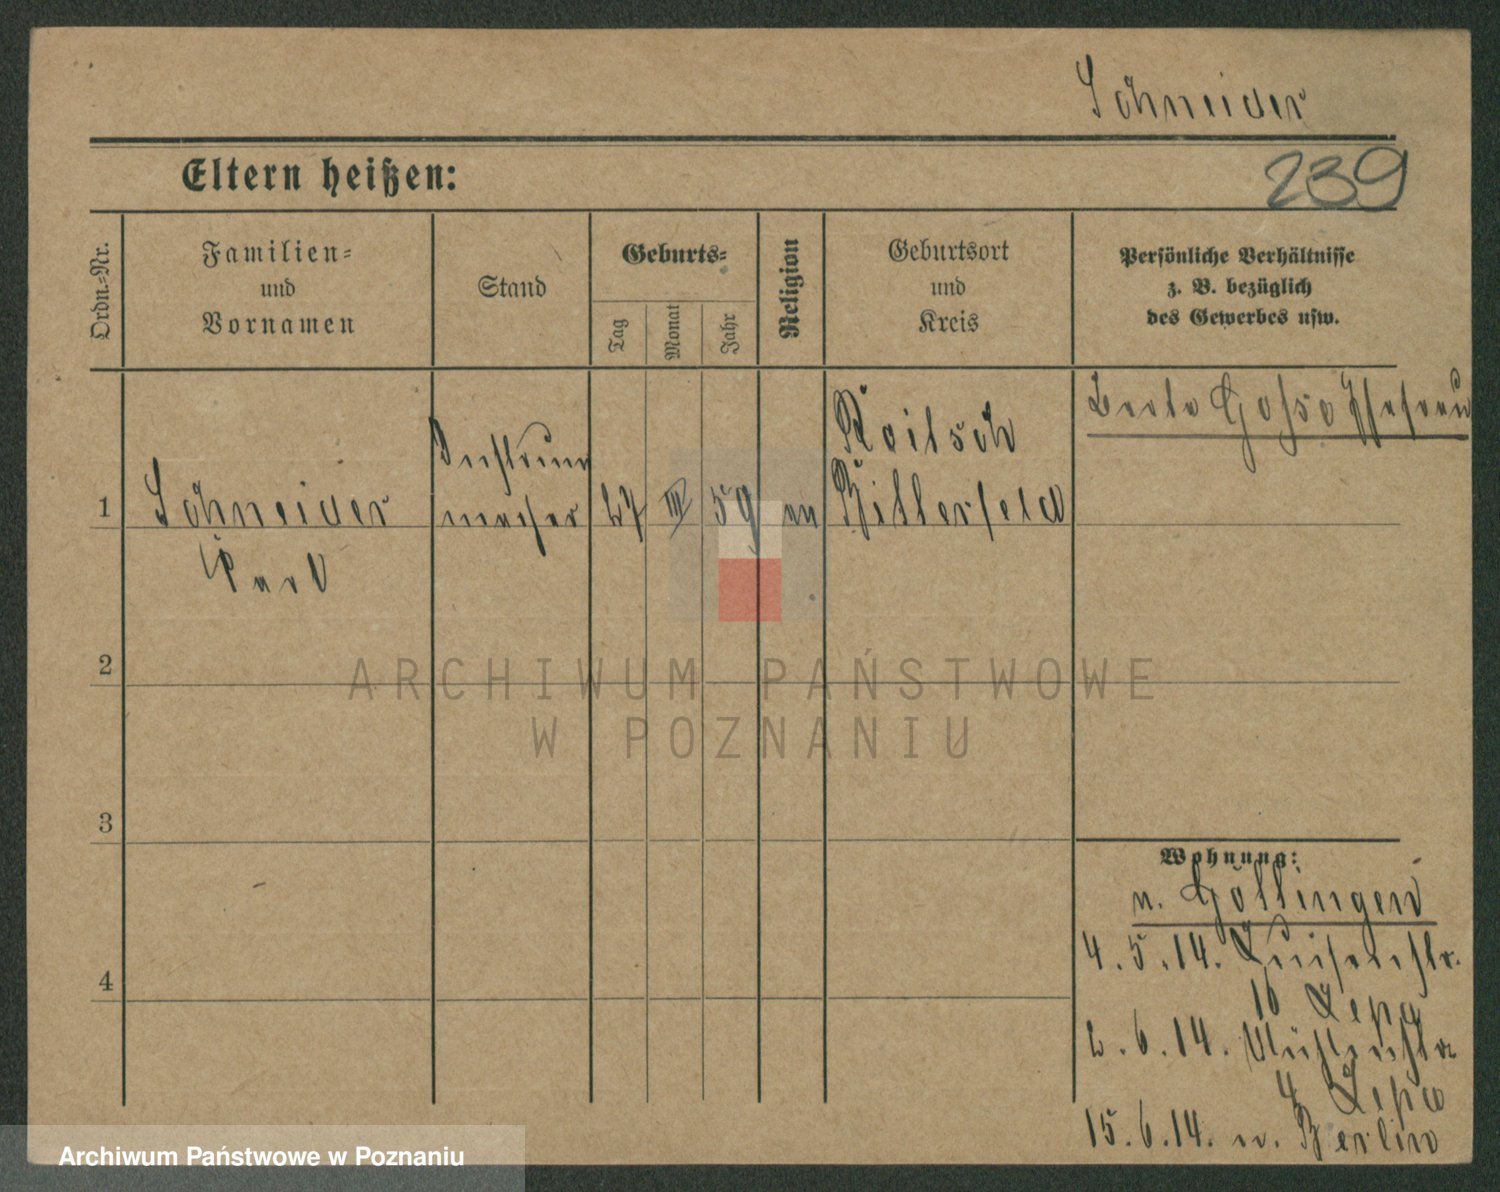 Schneider
Eltern heißen:
239
Ordn.=Nr.
Familien=
und
Vornamen
Stand
Geburts=
Tag
Monat
Jahr
Religion
Geburtsort
und
Kreis
Persönliche Verhältnisse
z. B. bezüglich
des Gewerbes usw.
1
Schneider
Karl
macher
27
III
59
Roitsch
Bitterfeld
Ehefrau
2
3
4
Wohnung:
n. Göttingen
4.5.14. Luisenstr.
16
2.6.14. Mühlenstr
4
15.6.14. n. Berlin
ARCHIWUM PAŃSTWOWE
W POZNANIU
Archiwum Państwowe w Poznaniu